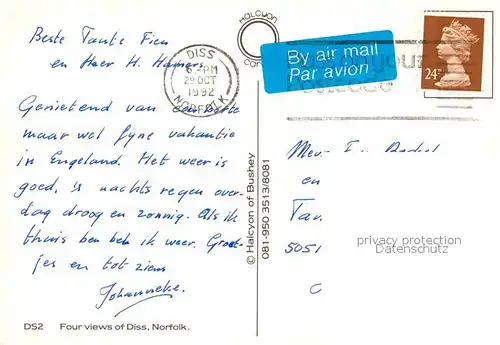 Beste Tante Fien
en Heer H. Hamers
Genietend van een korte
maar wel fijne vakantie
in Engeland. Het weer is
goed, 's nachts regen over-
dag droog en zonnig. Als ik
thuis ben bel ik weer. Groet-
jes en tot ziens
Johanneke.
DS2 Four views of Diss, Norfolk.
DISS
6-PM
29 OCT
1992
NORFOLK
HALCYON
By air mail
Par avion
24
© Halcyon of Bushey
081-950 3513/8081
Mev.
en
5051
privacy protection
Datenschutz